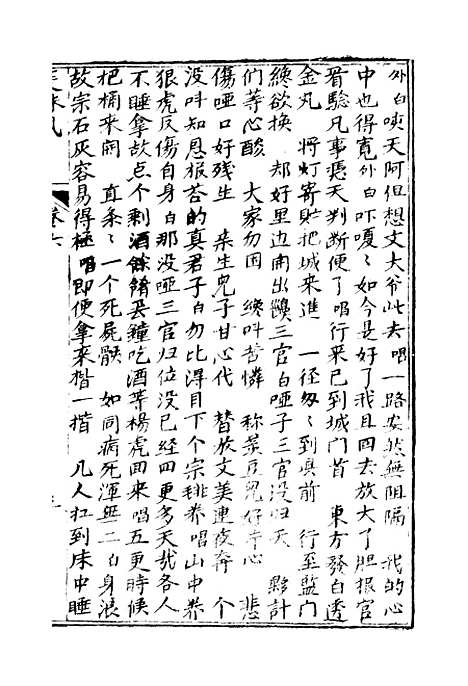 外白唉天阿但想文大爷此去唱一路安然無阻隔　我的心
中也得寬外白吓嗄〻如今是好了我且回去放大了胆报官
看驗凡事憑天判断便了唱行来已到城门首　東方發白透
金丸　将灯寄贮把城来進　一径匆〻到县前　行至監门
纔欲换　却好里边開出髒三官白哑子三官没归天　夥计
们等心酸　大家勿困　纔叫苦憐　称菜豆児好辛心　悲
傷哑口好残生　亲生児子甘心代　替放文美連夜奔　个
没叫知恩报荅的真君子白勿比得目下个宗桃养唱山中养
狠虎反傷自身白那没哑三官归位没已經四更多天哉各人
不睡拿故点个剩酒餘餚丟鐘吃酒等楊虎回来唱五更時候
把桶来開　直条〻一个死屍骸　如同病死渾無二白身浪
故宗石灰容易得極唱即便拿来揩一揩　几人扛到床中睡
卷六